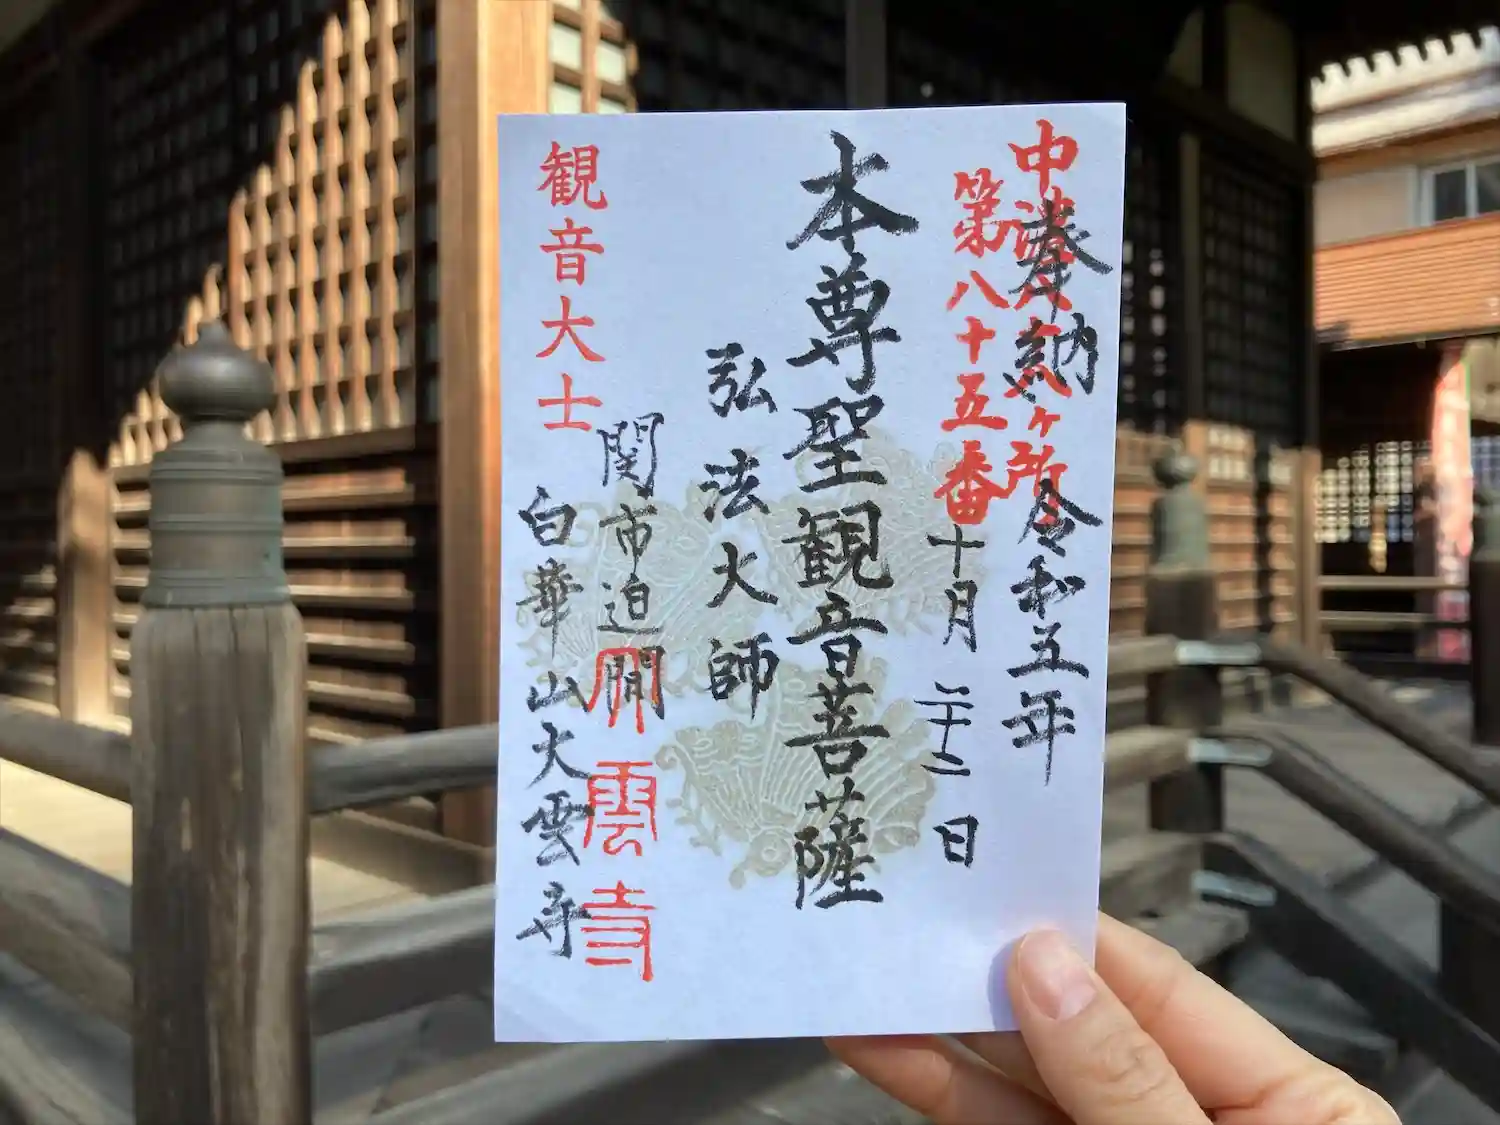 奉納
令和五年
十月二十二日
中濃八十八ヶ所
第八十五番
本尊聖観音菩薩
弘法大師
関市迫間
白華山大雲寺
観音大士
大雲寺